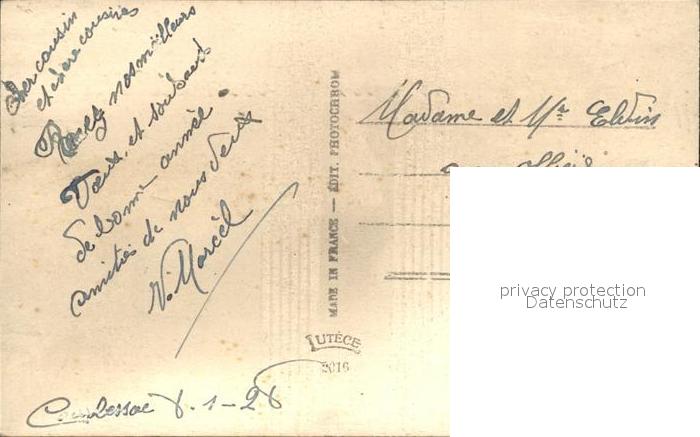 Cher cousin
et chère cousine
Recevez nos meilleurs
Voeux, et souhaits
de bonne année
amitiés de nous deux
V. Marcel
MADE IN FRANCE — ÉDIT. PHOTOCHROM
LUTÈCE
2016
Madame et Mr
8-1-26
privacy protection
Datenschutz